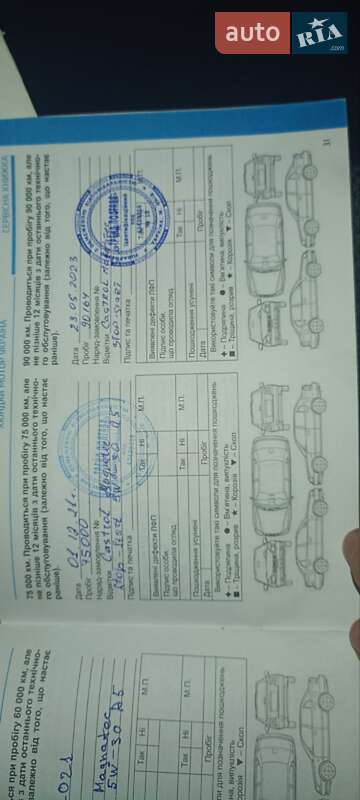 auto
RIA
.com
СЕРВІСНА КНИЖКА
90 000 км. Проводиться при пробігу 90 000 км, але
не пізніше 12 місяців з дати останнього технічно-
го обслуговування (залежно від того, що настає
раніше).
Дата 23 05 2023
Пробіг 90164
Наряд-замовлення №
Відмітки Castrol
Підпис та печатка
М.П.
Виявлені дефекти ЛФП
Так
Ні
М.П.
Підпис особи,
що проводила огляд
Пошкодження усунені
Так
Ні
М.П.
Дата
Пробіг
Використовуйте такі символи для позначення пошкоджень
– Подряпина
– Вм'ятина, випуклість
– Тріщина, розрив
– Корозія
– Скол
31
ХЮНДАЙ МОТОР УКРАЇНА
75 000 км. Проводиться при пробігу 75 000 км, але
не пізніше 12 місяців з дати останнього технічно-
го обслуговування (залежно від того, що настає
раніше).
Дата
Пробіг 75000
Наряд-замовлення №
Відмітки Castrol Magnatec
5W-30 A5
Підпис та печатка
М.П.
Виявлені дефекти ЛФП
Так
Ні
М.П.
Підпис особи,
що проводила огляд
Пошкодження усунені
Так
Ні
М.П.
Дата
Пробіг
Використовуйте такі символи для позначення пошкоджень
– Подряпина
– Вм'ятина, випуклість
– Тріщина, розрив
– Корозія
– Скол
ся при пробігу 60 000 км, але
з дати останнього технічно-
залежно від того, що настає
021
Magnatec
5W-30 A5
М.П.
Так
Ні
М.П.
Так
Ні
М.П.
Пробіг
ли для позначення пошкоджень
ятина, випуклість
Корозія
– Скол